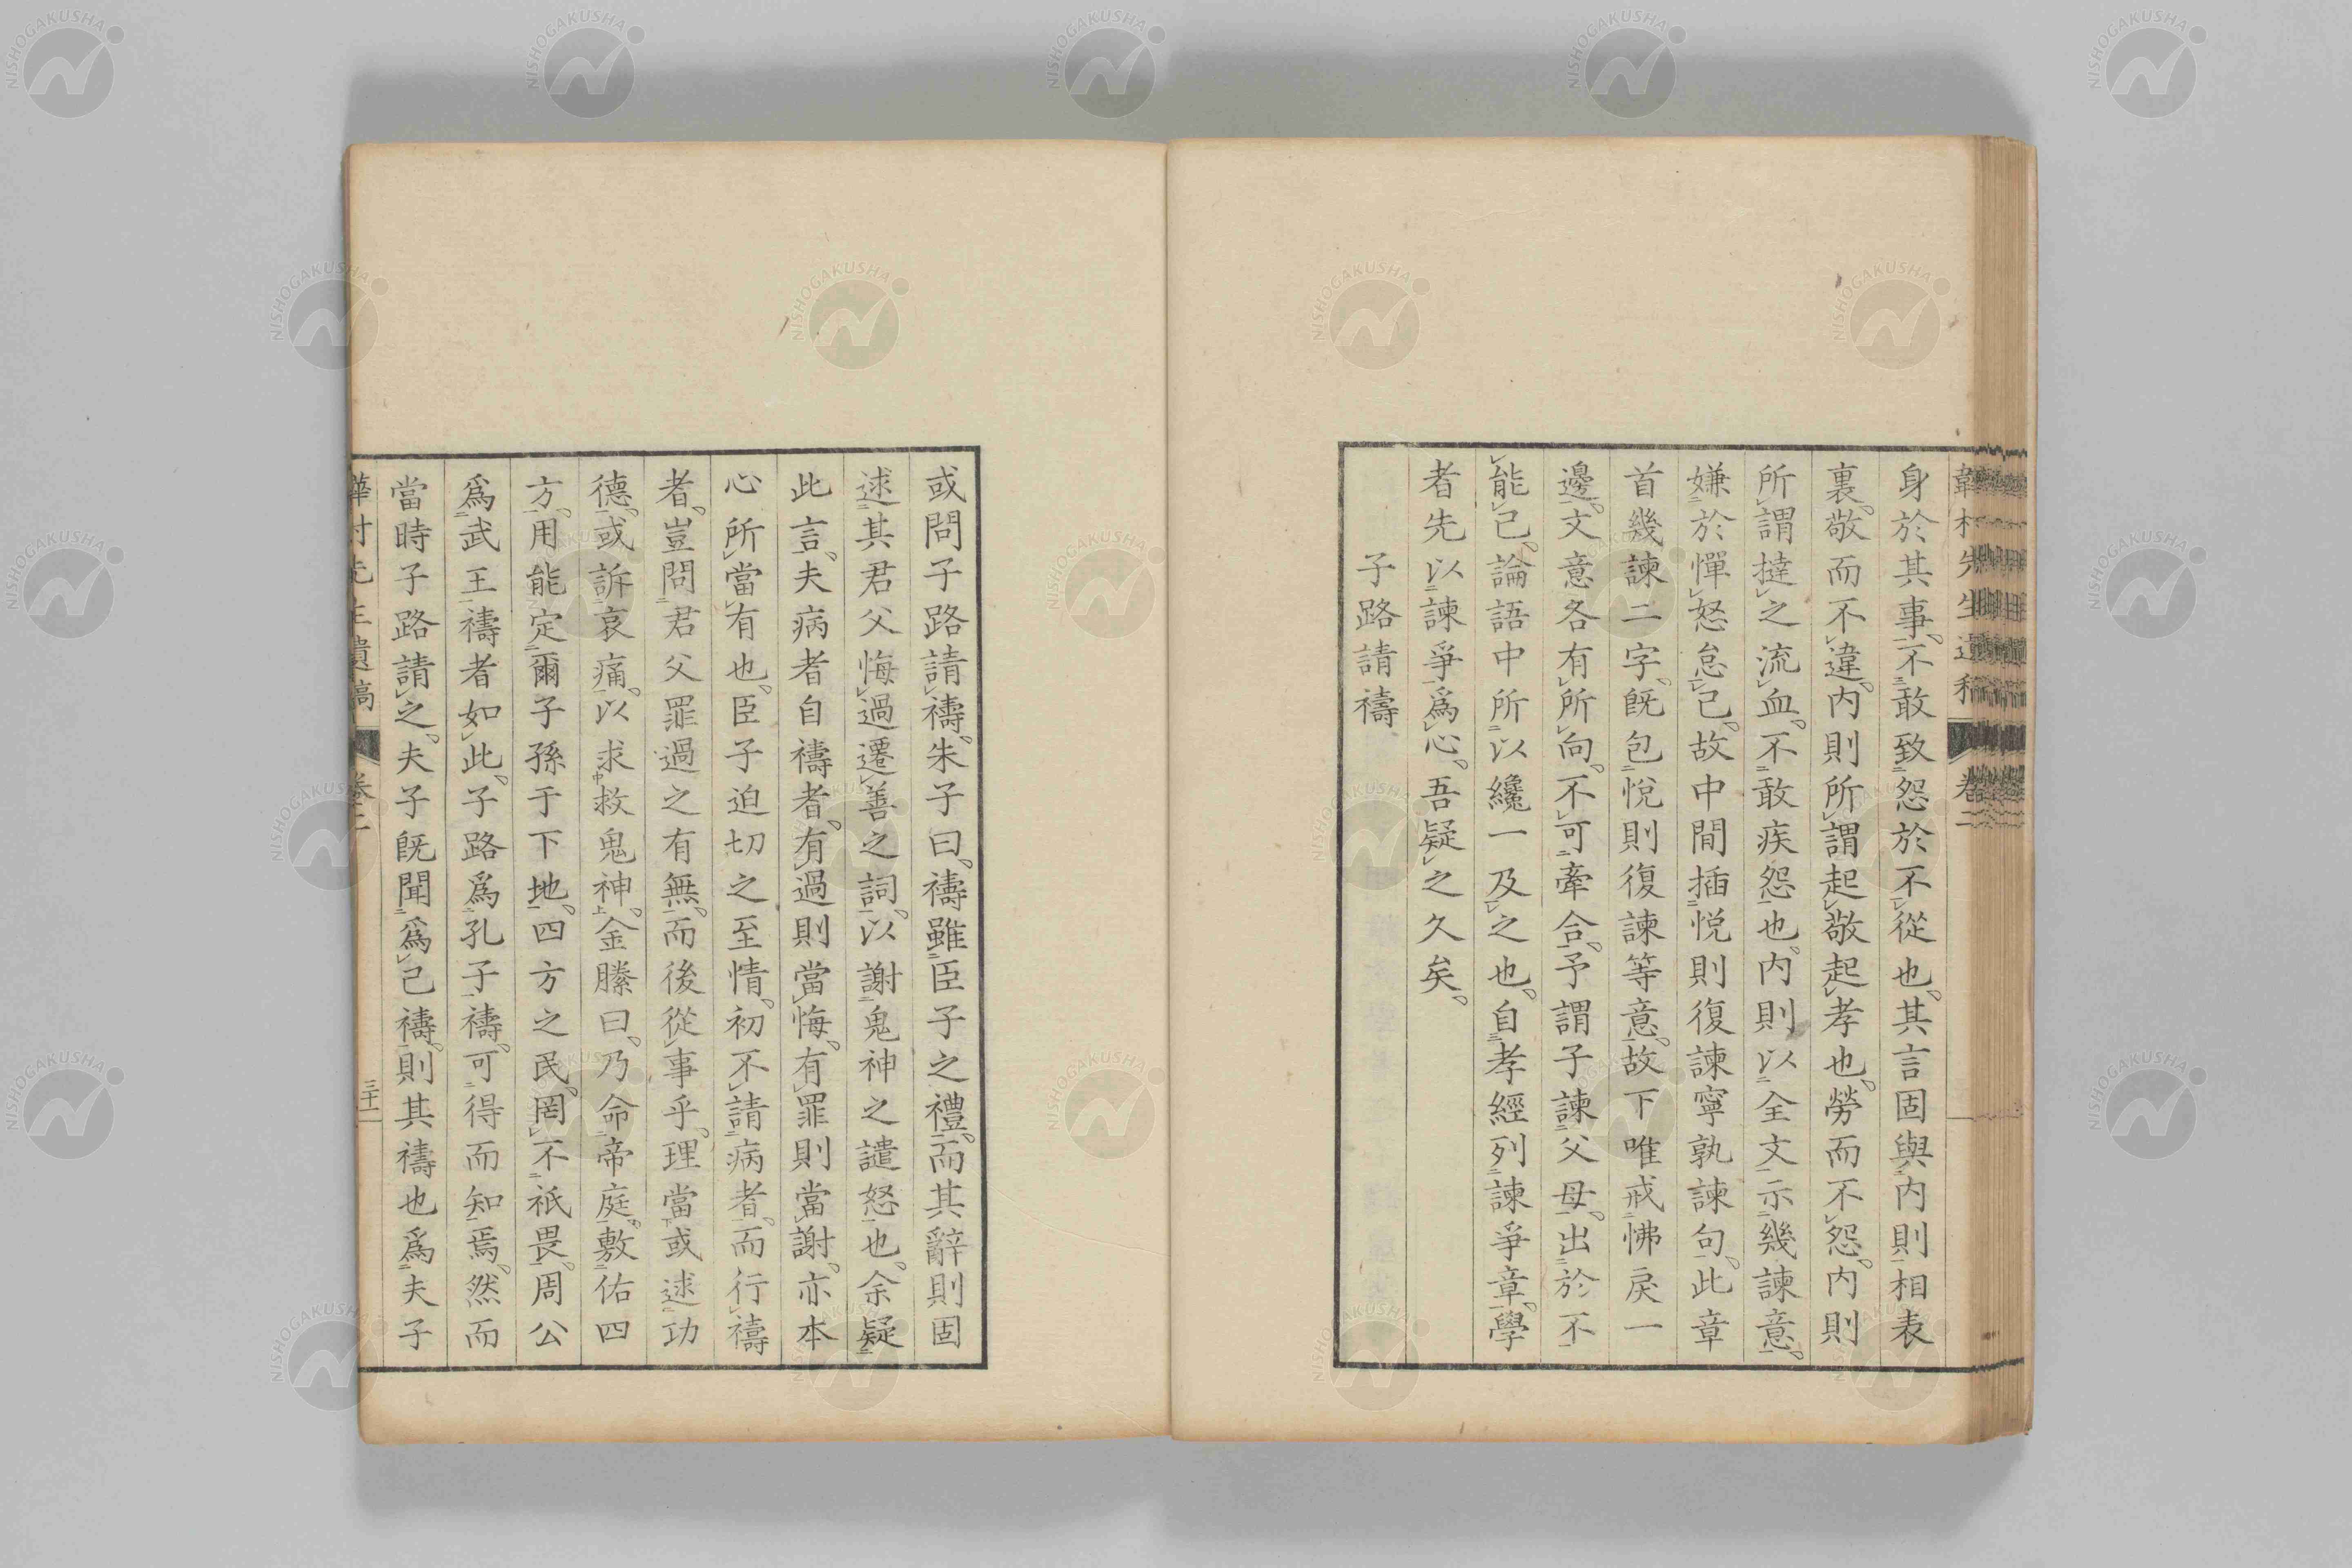 身於其事。不敢致怨於不從也。其言固與內則相表
裏。敬而不違。內則所謂起敬起孝也。勞而不怨。內則
所謂撻之流血。不敢疾怨也。內則以全文示幾諫意。
嫌於憚怒怠已。故中間插悅則復諫寧孰諫句。此章
首幾諫二字。既包悅則復諫等意。故下唯戒怫戾一
邊。文意各有所向。不可牽合。予謂子諫父母。出於不
能已。論語中所以纔一及之也。自孝經列諫爭章。學
者先以諫爭爲心。吾疑之久矣。
子路請禱
或問子路請禱。朱子曰。禱雖臣子之禮。而其辭則固
述其君父悔過遷善之詞。以謝鬼神之譴怒也。余疑
此言。夫病者自禱者。有過則當悔。有罪則當謝。亦本
心所當有也。臣子迫切之至情。初不請病者。而行禱
者。豈問君父罪過之有無。而後從事乎。理當或述功
德。或訴哀痛。以求救鬼神。金縢曰。乃命帝庭。敷佑四
方。用能定爾子孫于下地。四方之民。罔不祇畏。周公
爲武王禱者如此。子路爲孔子禱。可得而知焉。然而
當時子路請之。夫子既聞爲己禱。則其禱也爲夫子
先生遺稿 卷二 三十一
NISHOGAKUSHA